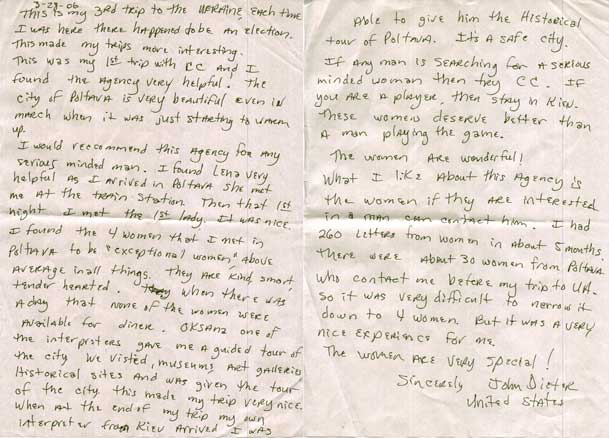 3-29-06
This is my 3rd trip to the Ukraine, each time
I was here there happened to be an election.
This made my trips more interesting.
This was my 1st trip with CC and I
found the agency very helpful. The
city of Poltava is very beautiful even in
march when it was just starting to warm
up.
I would reccommend this Agency for any
serious minded man. I found Lena very
helpful as I arrived in Poltava she met
me at the train station. Then that 1st
night I met the 1st lady. It was nice.
I found the 4 women that I met in
Poltava to be "exceptional women" above
average in all things. They are kind, smart,
tender hearted. When there was
a day that none of the women were
available for diner. Oksana one of
the interpreters gave me a guided tour of
the city we visted, museums art galleries
Historical sites and was given the tour
of the city this made my trip very nice.
When at the end of my trip my own
interpreter from Kiev arrived I was
Able to give him the Historical
tour of Poltava. Its a safe city.
If any man is searching for a serious
minded woman then try CC. If
you are a player, then stay in Kiev.
These women deserve better than
a man playing the game.
The women are wonderful!
What I like about this Agency is
the women if they are interested
in a man can contact him. I had
260 letters from women in about 5 months.
There were about 30 women from Poltava
who contact me before my trip to UA.
so it was very difficult to narrow it
down to 4 women. But it was a very
nice experience for me.
The women are very special!
Sincerely John Dieter
United States